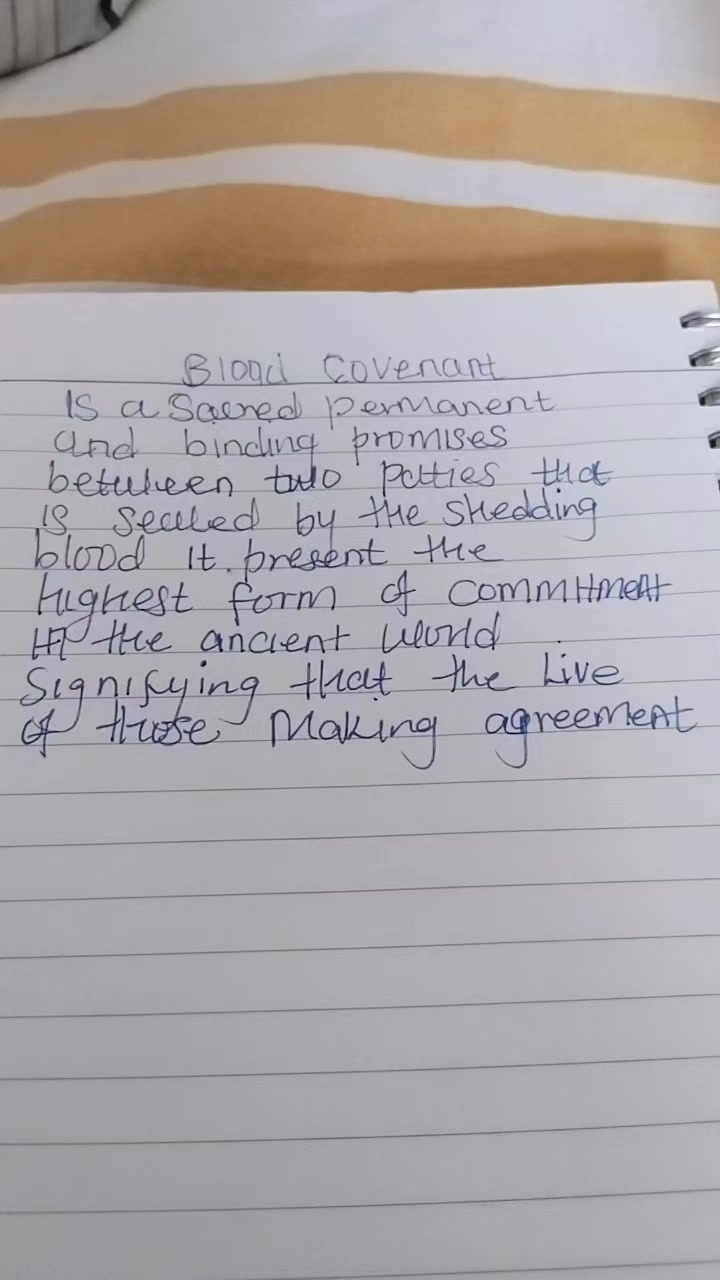 Blood Covenant
Is a Sacred permanent
and binding promises
between two patties that
is sealed by the shedding
blood it. present the
highest form of commitment
in the ancient world
Signifying that the Live
of those Making agreement